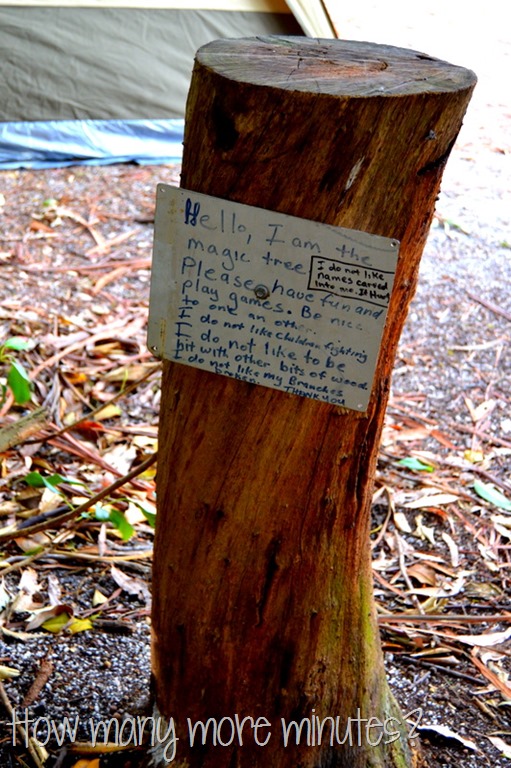 Hello, I am the
magic tree
I do not like
names carved
into me.
Please have fun and
play games. Be nice
to one an other.
I do not like children fighting
I do not like to be
hit with other bits of wood
I do not like my Branches
broken. THANKYOU
How many more minutes?